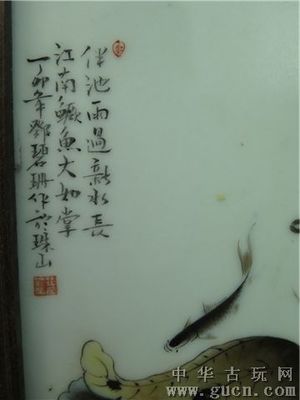 伴池雨過新水長
江南鱖魚大如掌
丁卯年鄧碧珊作於珠山
中华古玩网
www.gucn.com